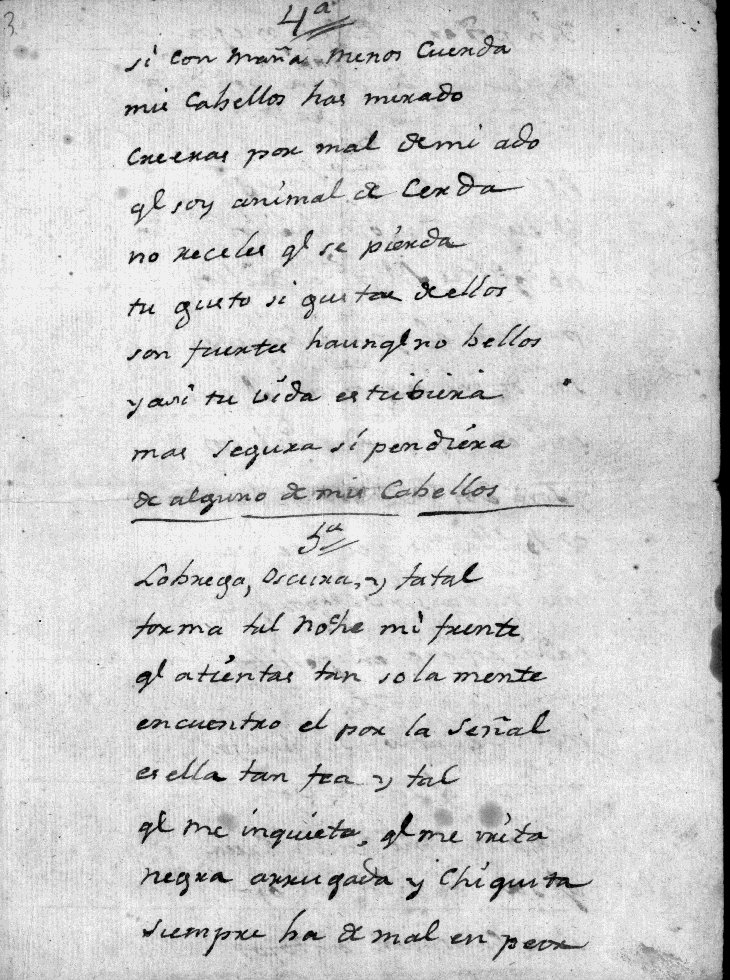 3
4ª
si con maña menos Cuerda
mis Cabellos has mirado
Creeras por mal de mi ado
ql soy animal de Cerda
no receles ql se pierda
tu gusto si gustas de ellos
son fuertes haunql no bellos
y asi tu vida estubiera
mas segura si pendiéra
de alguno de mis Cabellos
5ª
Lobrega, oscura, y fatal
forma tal noche mi frente
ql atiéntas tan solamente
encuentro el por la Señal
es ella tan fea y tal
ql me inquieta, ql me irrita
negra arrugada y Chiquita
siempre ha de mal en peor